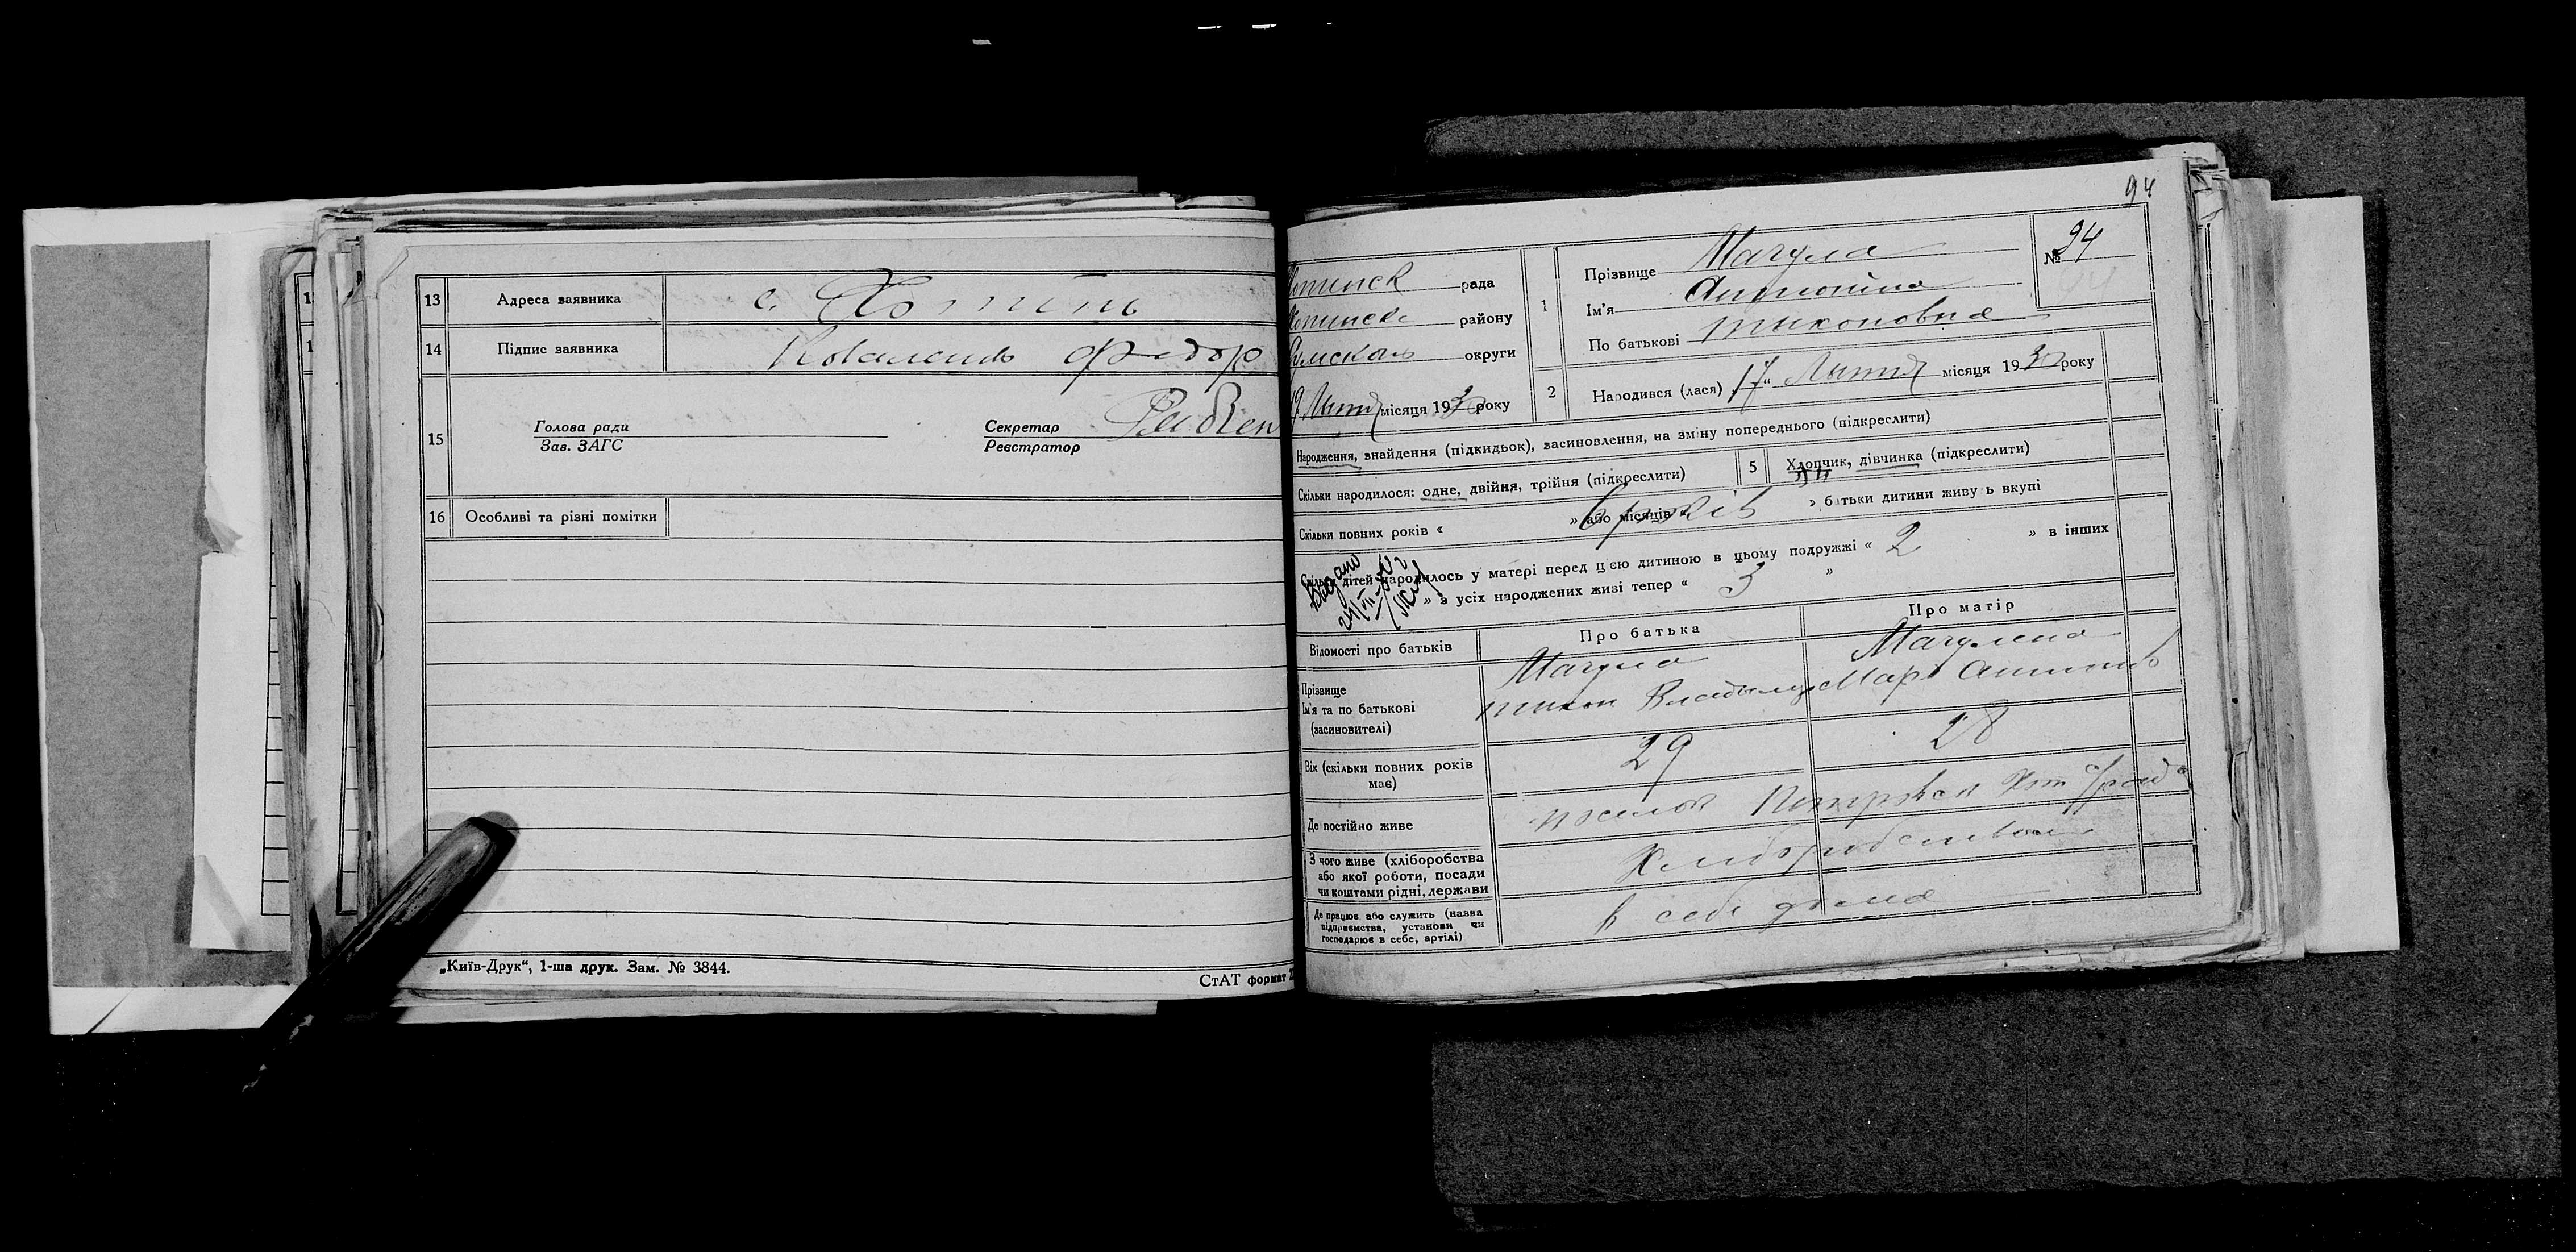 13 Адреса заявника с. Хотінь
14 Підпис заявника Коваленко Федор
15 Голова ради
Зав. ЗАГС
Секретар
Реєстратор
16 Особливі та різні помітки
„Київ-Друк“, 1-ша друк. Зам. № 3844.
СтАТ формат
94
рада
району
округи
місяця 1930 року
1 Прізвище Магула
Ім'я Антонина
По батькові Тихоновна
№ 94
2 Народився (лася) „17“ Липня місяця 1930 року
Народження, знайдення (підкидьок), засиновлення, на зміну попереднього (підкреслити)
Скільки народилося: одне, двійня, трійня (підкреслити)
5 Хлопчик, дівчинка (підкреслити)
Скільки повних років « » або місяців « 6 років » батьки дитини живуть вкупі
Скільки дітей народилось у матері перед цією дитиною в цьому подружжі « 2 » в інших
» з усіх народжених живі тепер « 3 »
Відомості про батьків
Про батька
Про матір
Прізвище
Ім'я та по батькові
(засиновителі)
Магула
Тихон
Магулена
Вік (скільки повних років
має)
29
28
Де постійно живе
З чого живе (хліборобства
або якої роботи, посади
чи коштами рідні, держави
Хліборобством
Де працює або служить (назва
підприємства, установи чи
господарює в себе, артілі)
в себе дома